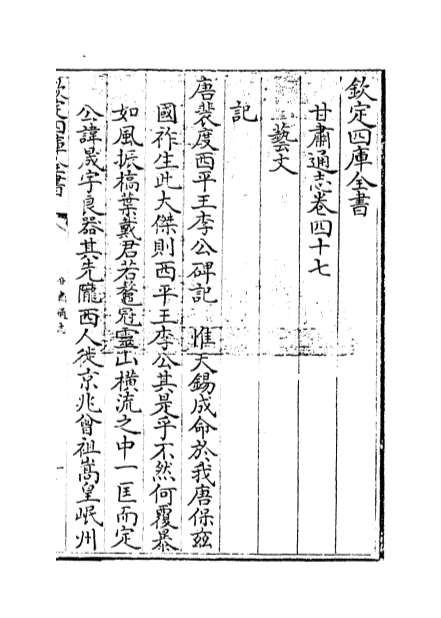 欽定四庫全書
甘肅通志卷四十七
藝文
記
唐裴度西平王李公碑記　惟天錫成命於我唐保兹
國祚生此大傑則西平王李公其是乎不然何覆暴
如風振槁葉戴君若鼇冠靈山橫流之中一匡而定
公諱晟字良器其先隴西人徙京兆曾祖嵩皇岷州
欽定四庫全書
甘肅通志
一